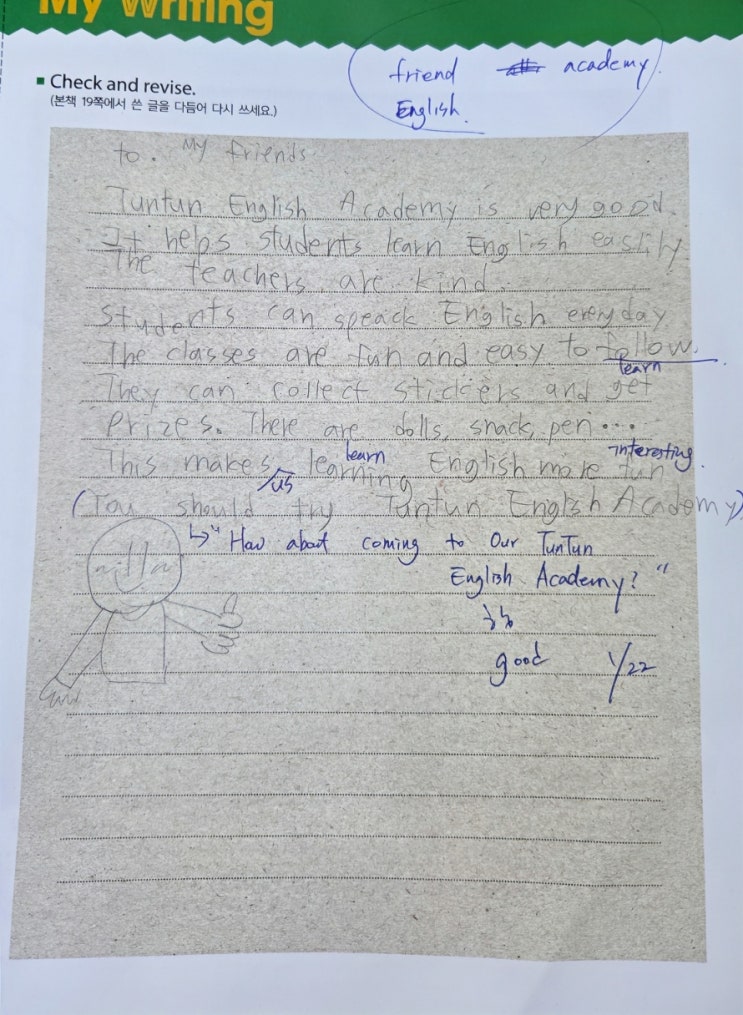 My Writing
friend academy
English.
Check and revise.
(본책 19쪽에서 쓴 글을 다듬어 다시 쓰세요.)
to. My friends.
Tuntun English Academy is very good.
It helps students learn English easily.
The teachers are kind.
students can speack English everyday
The classes are fun and easy to follow.
learn
They can collect stickers and get
Prizes. There are dolls, snack, pen...
learn interesting.
This makes learning English more fun
us
(You should try Tuntun English Academy)
"How about coming to Our TunTun
English Academy?"
good 1/22